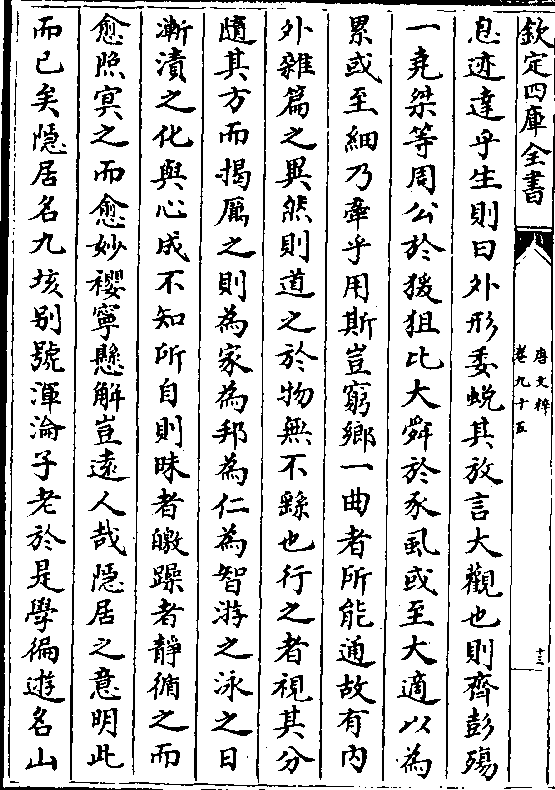 欽定四庫全書
唐文粹
卷九十五
十三
息迹達乎生則曰外形委蛻其放言大觀也則齊彭殤
一堯桀等周公於猨狙比大舜於豕虱或至大適以為
累或至細乃牽乎用斯豈窮鄉一曲者所能通故有内
外雜篇之異然則道之於物無不繇也行之者視其分
隨其方而揭厲之則為家為邦為仁為智游之泳之日
漸漬之化與心成不知所自則昧者皦躁者靜循之而
愈照冥之而愈妙禐寧懸解豈遠人哉隱居之意明此
而已矣隱居名九垓别號渾淪子老於是學徧遊名山